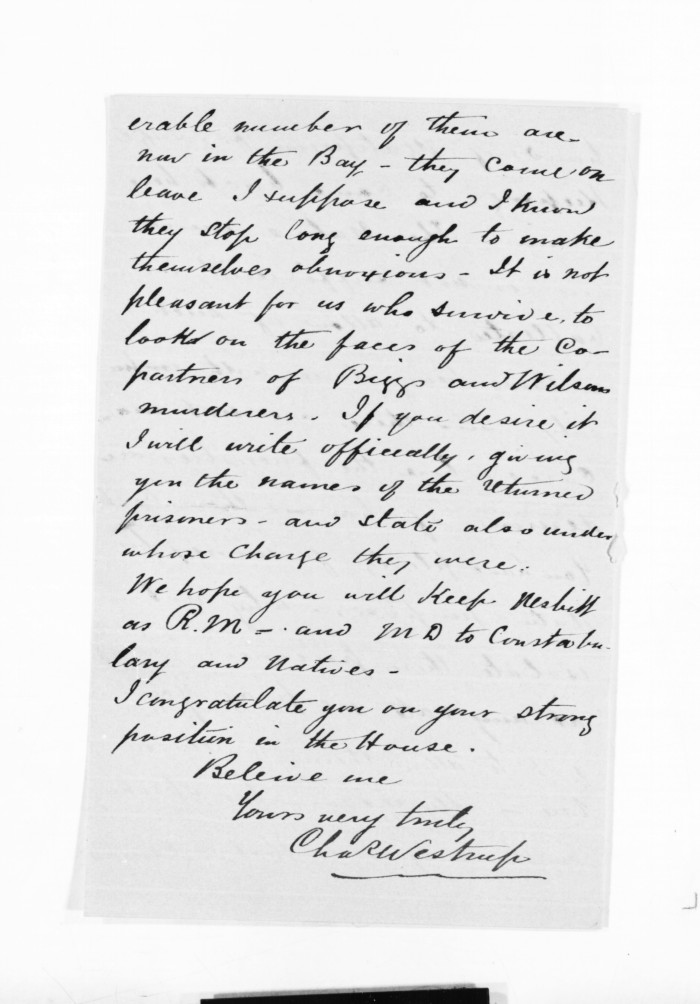 erable number of them are
now in the Bay - they come on
leave I suppose and I know
they stop long enough to make
themselves obnoxious - It is not
pleasant for us who survive, to
look on the faces of the Co-
partners of Biggs and Wilsons
murderers. If you desire it
I will write officially, giving
you the names of the returned
prisoners - and state also under
whose charge they were.
We hope you will keep Nesbitt
as R.M - and M D to Constabu-
lary and Natives -
I congratulate you on your strong
position in the House.
Beleive me
Yours very truly
Chas Westrup